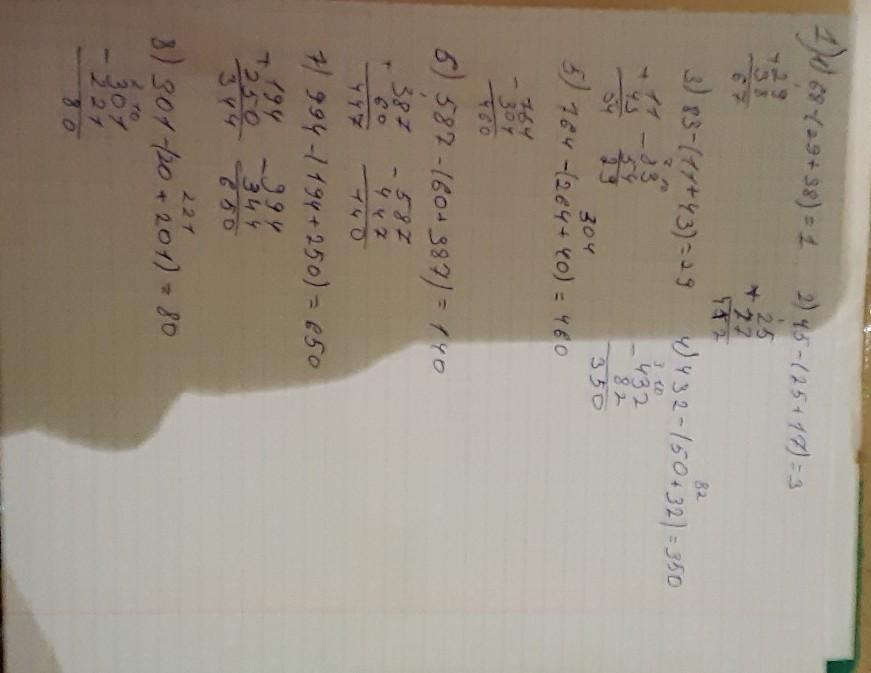 1) 1) 68-(29+38)=1 2) 45-(25+17)=3
+29 +25
38 17
67 42
3) 83-(11+43)=29 4) 432-(50+32)=350
82
+11 -83 -432
43 54 82
54 29 350
5) 764-(264+40)=460
304
-764
304
460
6) 587-(60+387)=140
+387 -587
60 447
447 140
7) 994-(194+250)=650
+194 -994
250 344
344 650
8) 301-(20+201)=80
221
2 10
-301
221
80